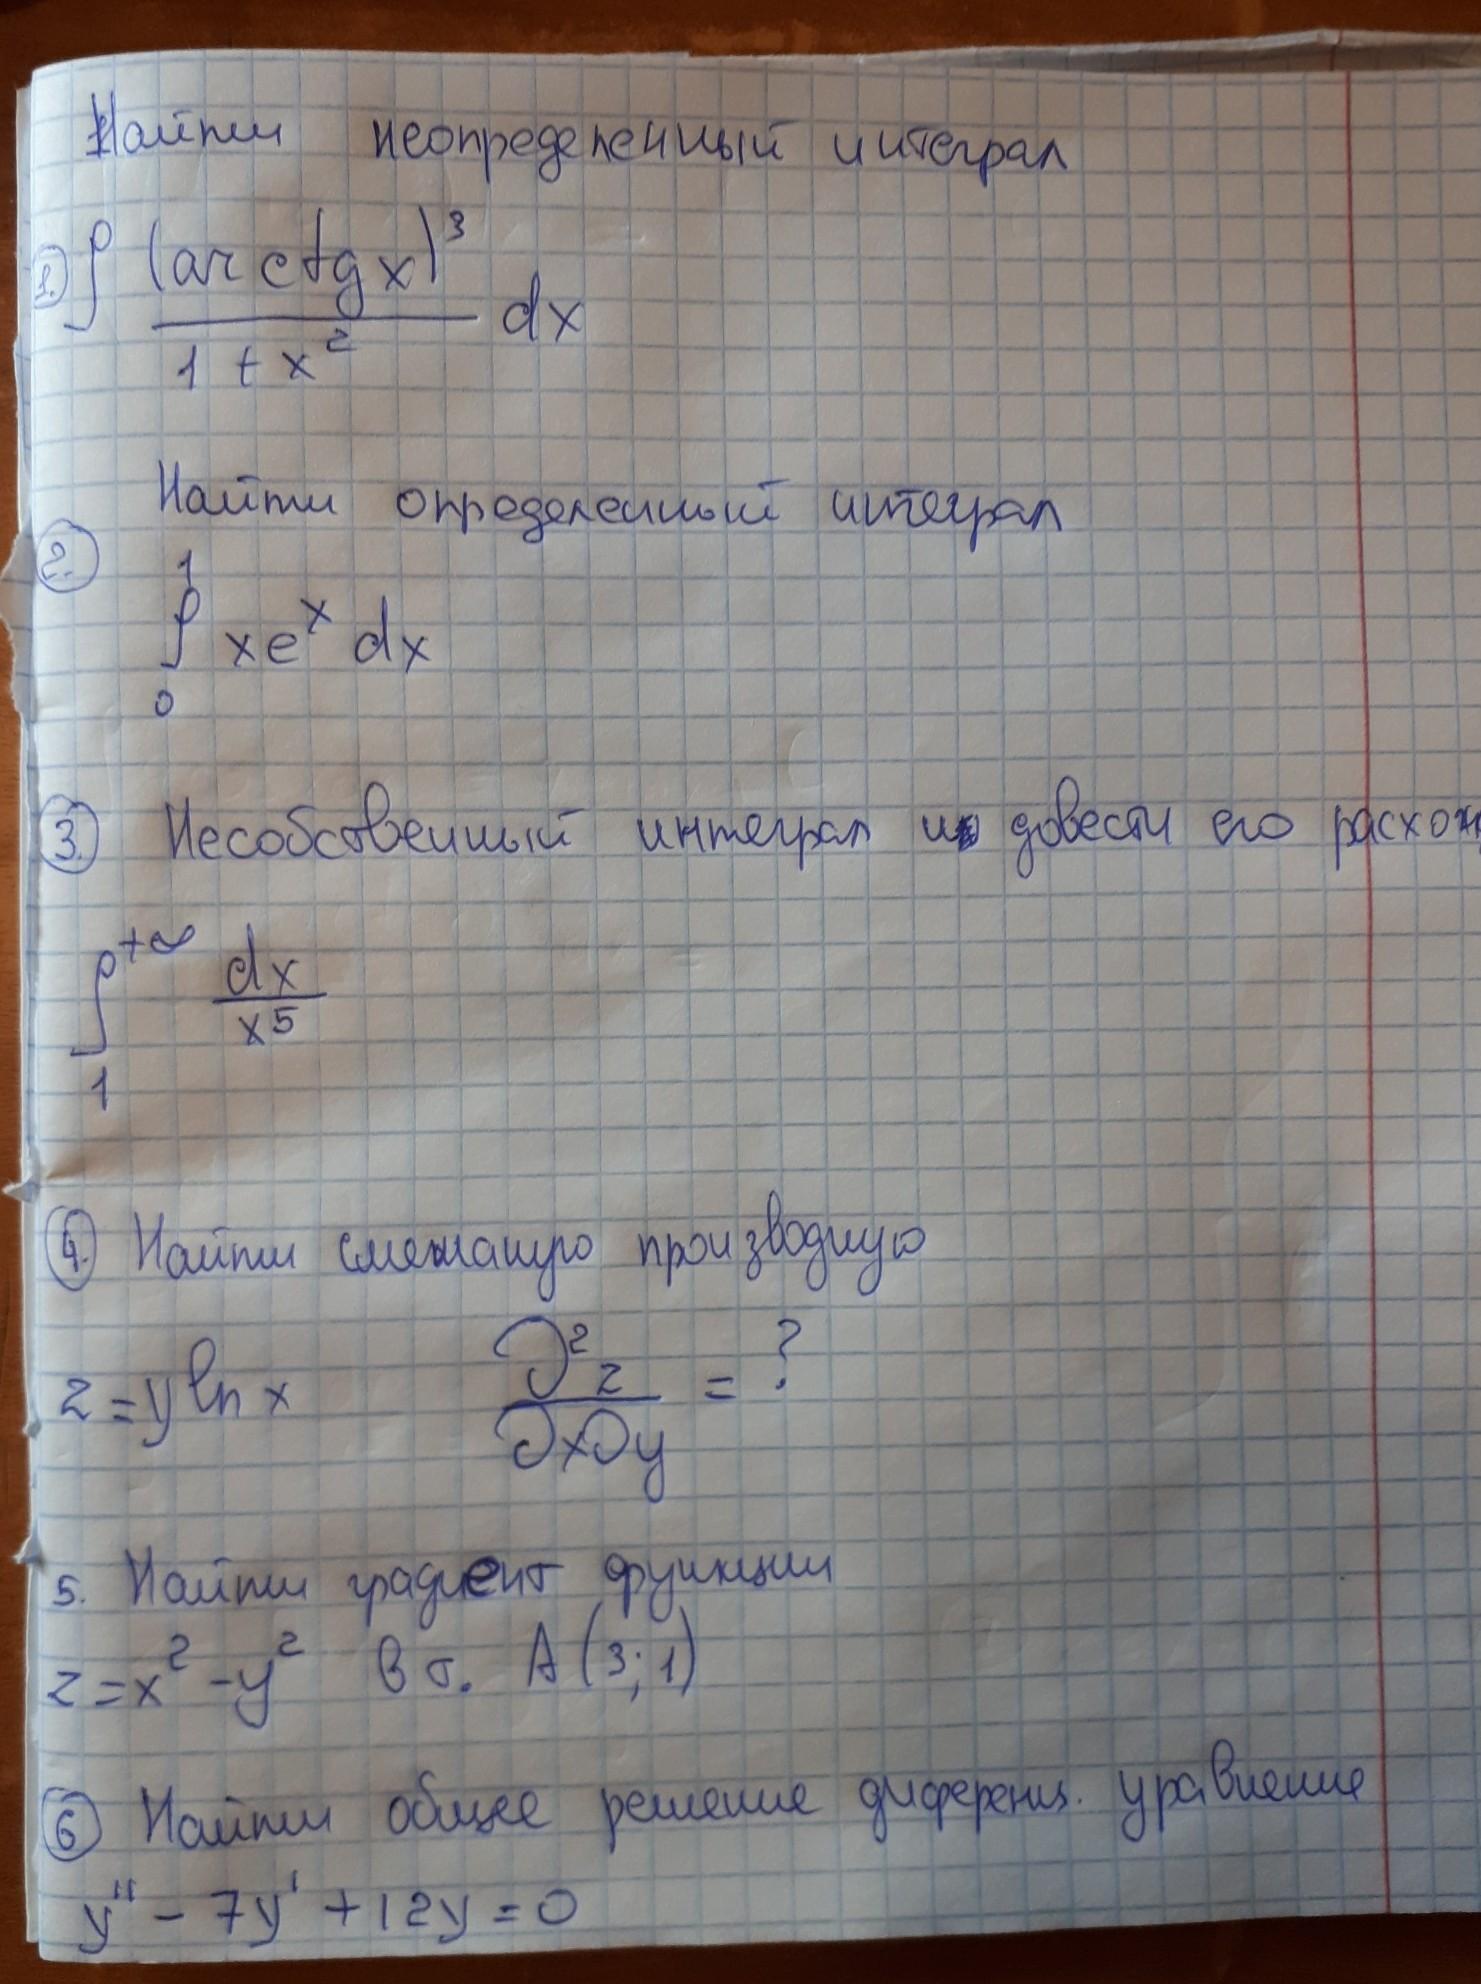 Найти неопределенный интеграл
1. ∫ (arctgx)³ / 1 + x² dx
Найти определенный интеграл
2.
∫₀¹ xeˣ dx
3. Несобственный интеграл и довести его расхож
∫₁⁺∞ dx / x⁵
4. Найти смежаную производную
z = y ln x ∂²z / ∂x∂y = ?
5. Найти градиент функции
z = x² - y² в т. A (3; 1)
6 Найти общее решение диференц. уравнение
y'' - 7y' + 12y = 0